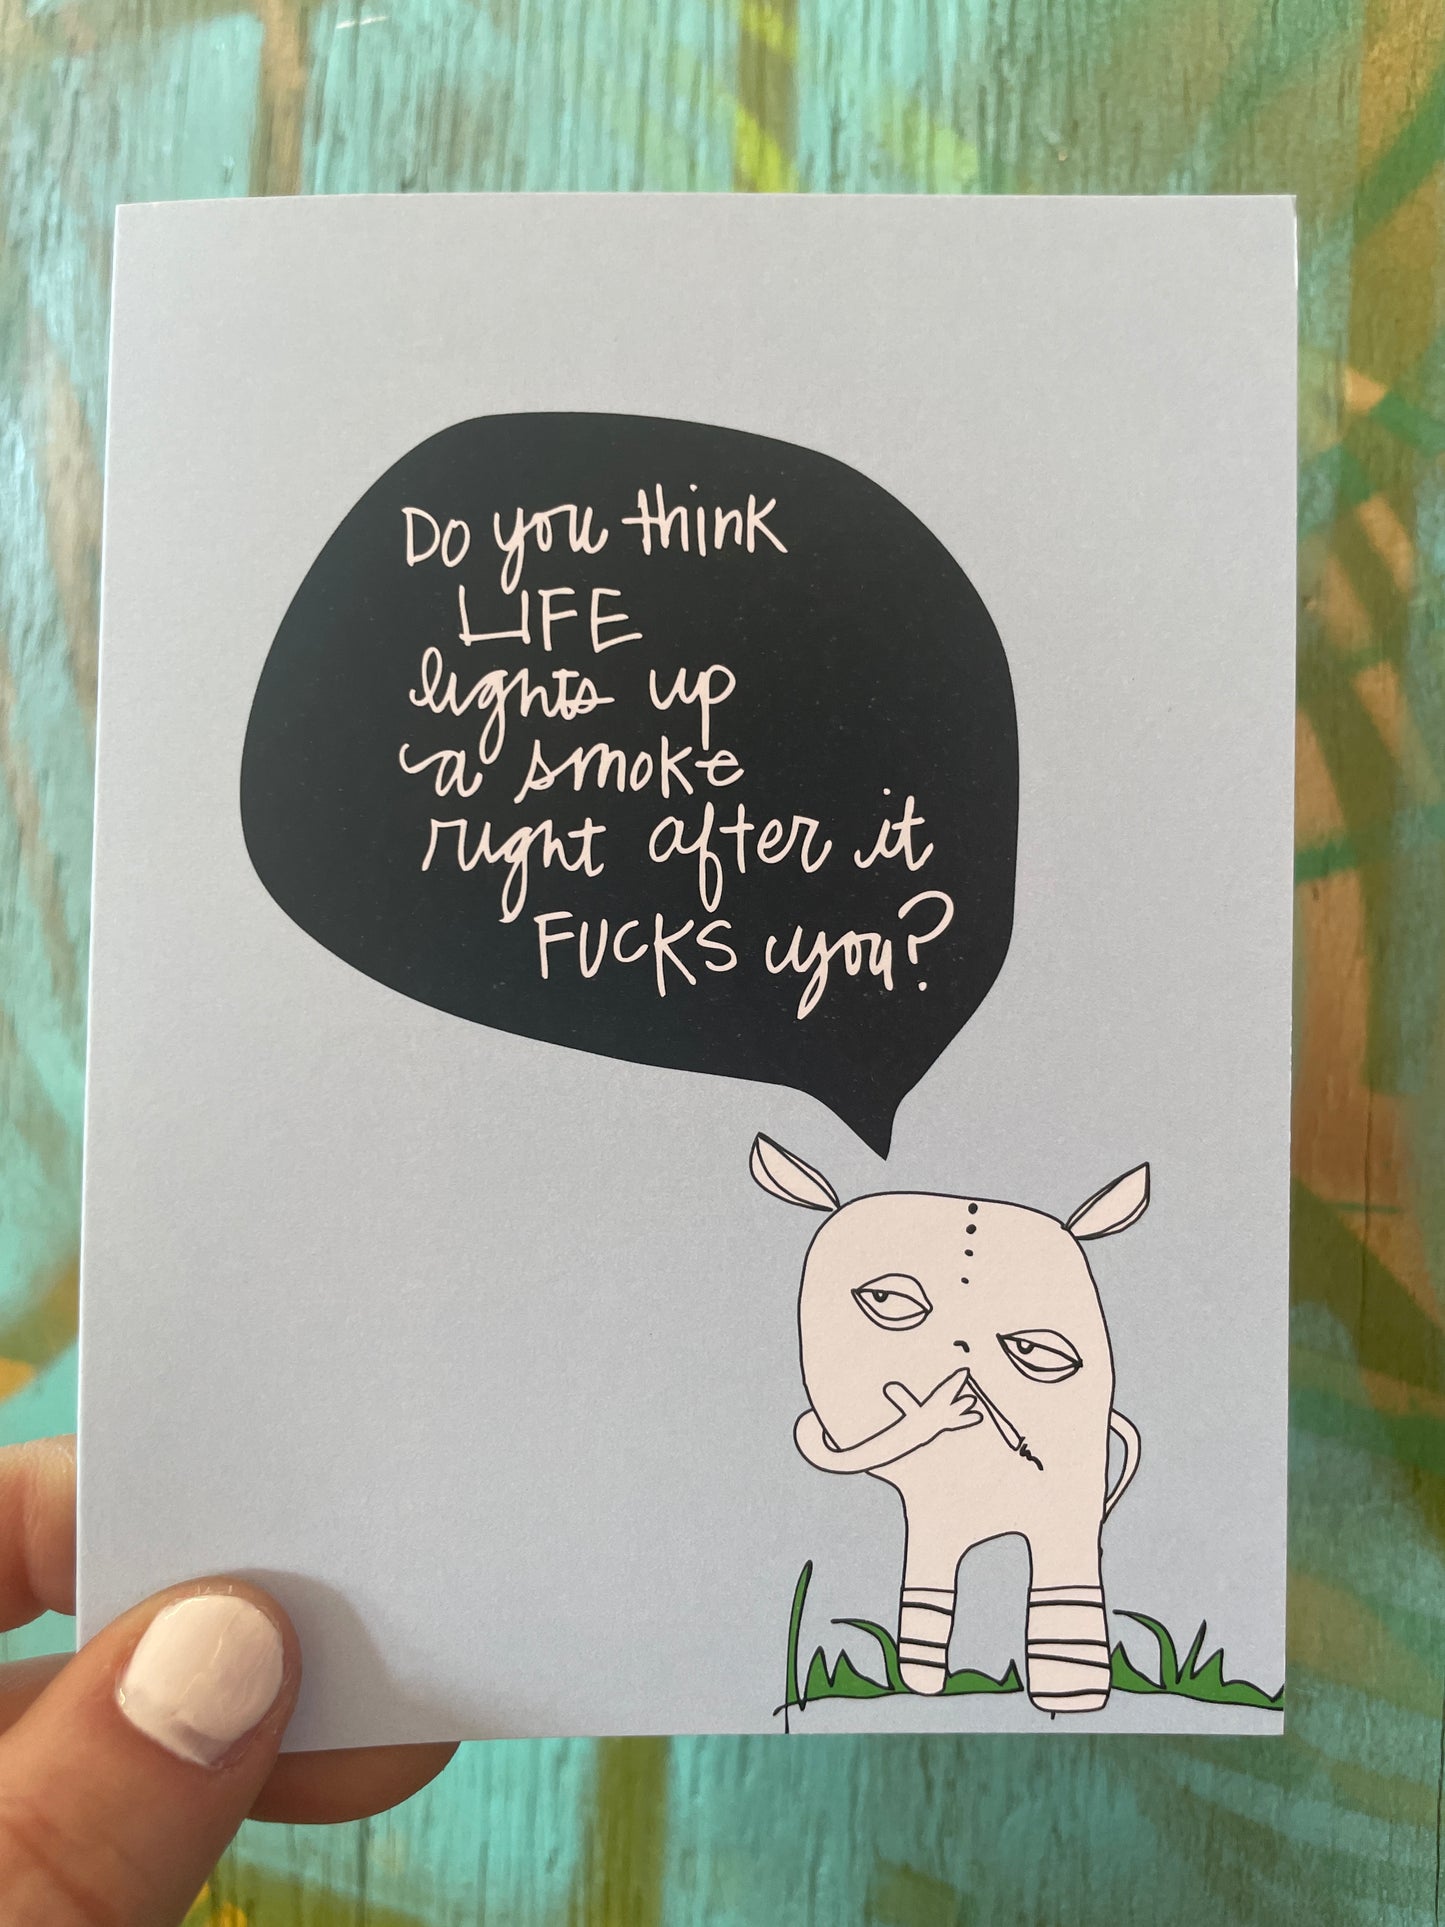 Do you think
LIFE
lights up
a smoke
right after it
FUCKS you?